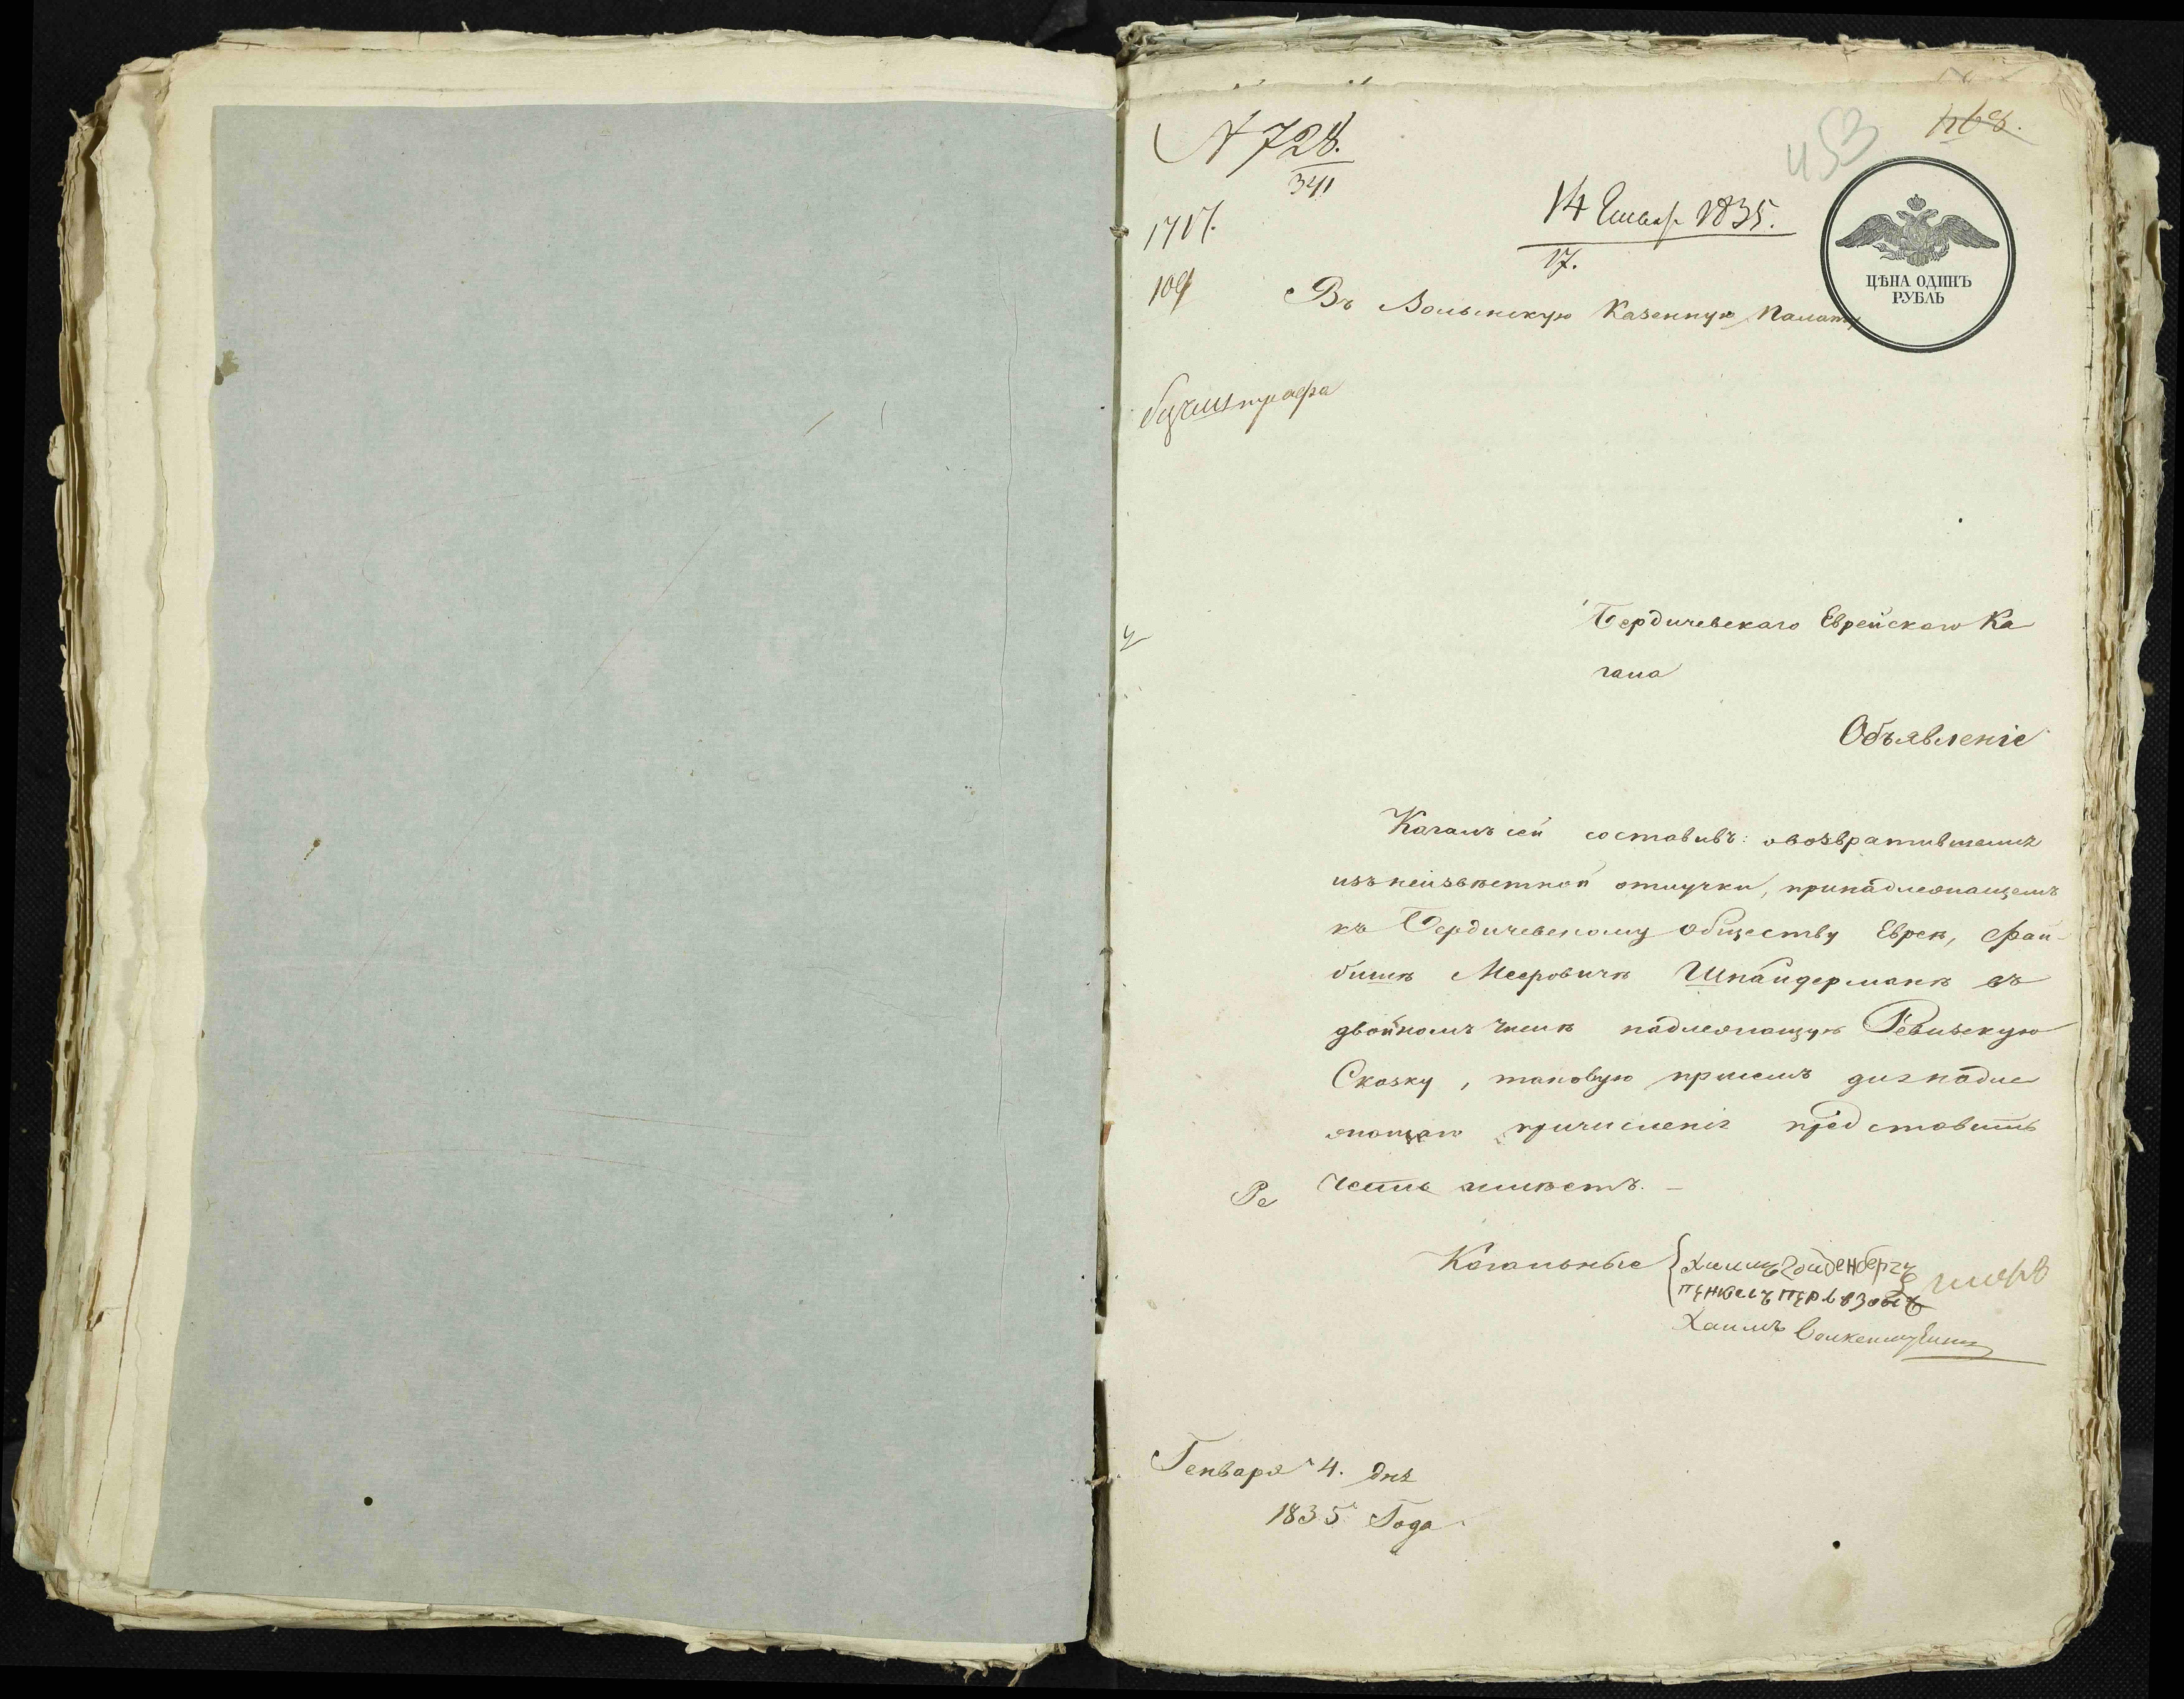 N 728.
341
453
168.
1717.
109
14 Генвар 1835.
17.
ЦѢНА ОДИНЪ
РУБЛЬ
Въ Волынскую Казенную Палату
безъ штрафа
Бердичевскаго Еврейскаго Ка
гала
Объявленіе
Кагалъ сей составивъ: овозвратившемся
изънеизвѣстной отлучки, принадлежащемъ
къ Бердичевскому обществу Евреѣ, Фай-
бишѣ Мееровичѣ Шпайдерманѣ въ
двойномъ числѣ надлежащую Ревизскую
Сказку, таковую присемъ длянадле
жащаго причисленія представить
Ре
честь имѣетъ. —
Кагальные
Хаимъ
Генваря 4. дня
1835 Года